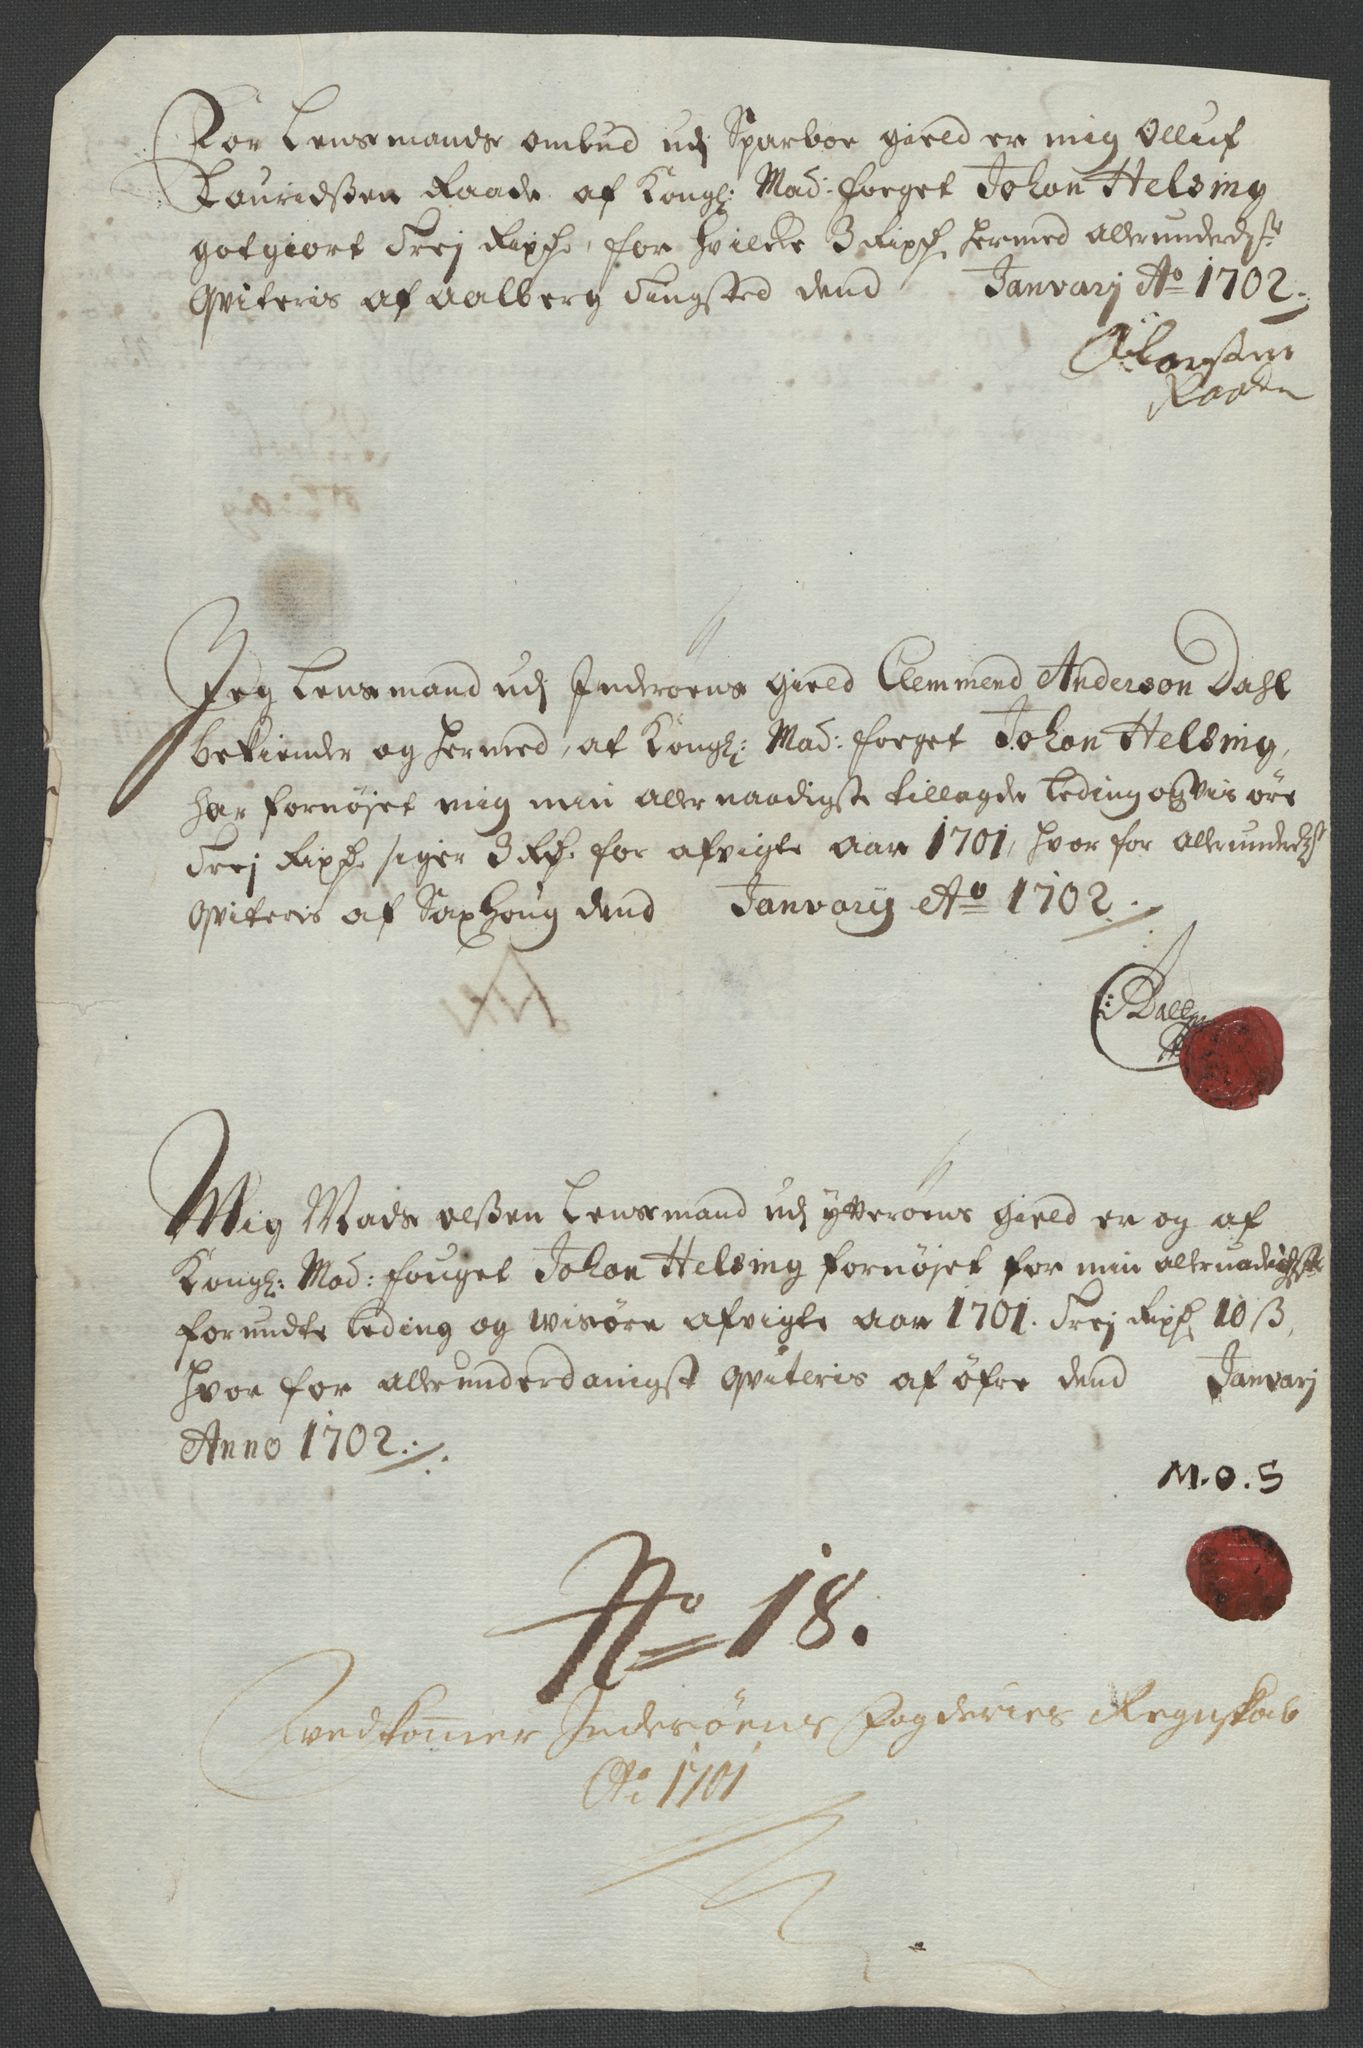 For Lensmands ombud udj Sparboe gield er mig Olluf
Lauridßen Raade af Kongl: May: foeget Johan Helsing
gotgiort Trej Rixdr, for hvilcke 3 Rixdr hermed allerunderdst
qviteris af Aalberg Tingsted dend Januarij Ao 1702.
Olarßen
Raaden
Jeg Lensmand udj Inderøens gield Clemmend Anderson Dahl
bekiender og hermed, at Kongl: May: foeget Johan Helsing,
har fornøjet mig min allernaadigste tillagde leding og vis øre
Trej Rixdr siger 3 Rdr for afvigte aar 1701, hvor for allerunderdst
qviteris af Saxhoug dend Januarij Ao 1702.
C: Dall
Mig Mads olßen Lensmand udj ytterøens gield er og af
Kongl: May: fouget Johan Helsing fornøjet for min allernaadigste
forundte leding og wisøre afvigte aar 1701. Trej Rixdr 10 ß,
hvor for allerunderdanigst qviteris af øfre dend Januarij
Anno 1702.
M.O.S
No 18.
Vedkommer Inderøens Fogderies Regnskab
Ao 1701